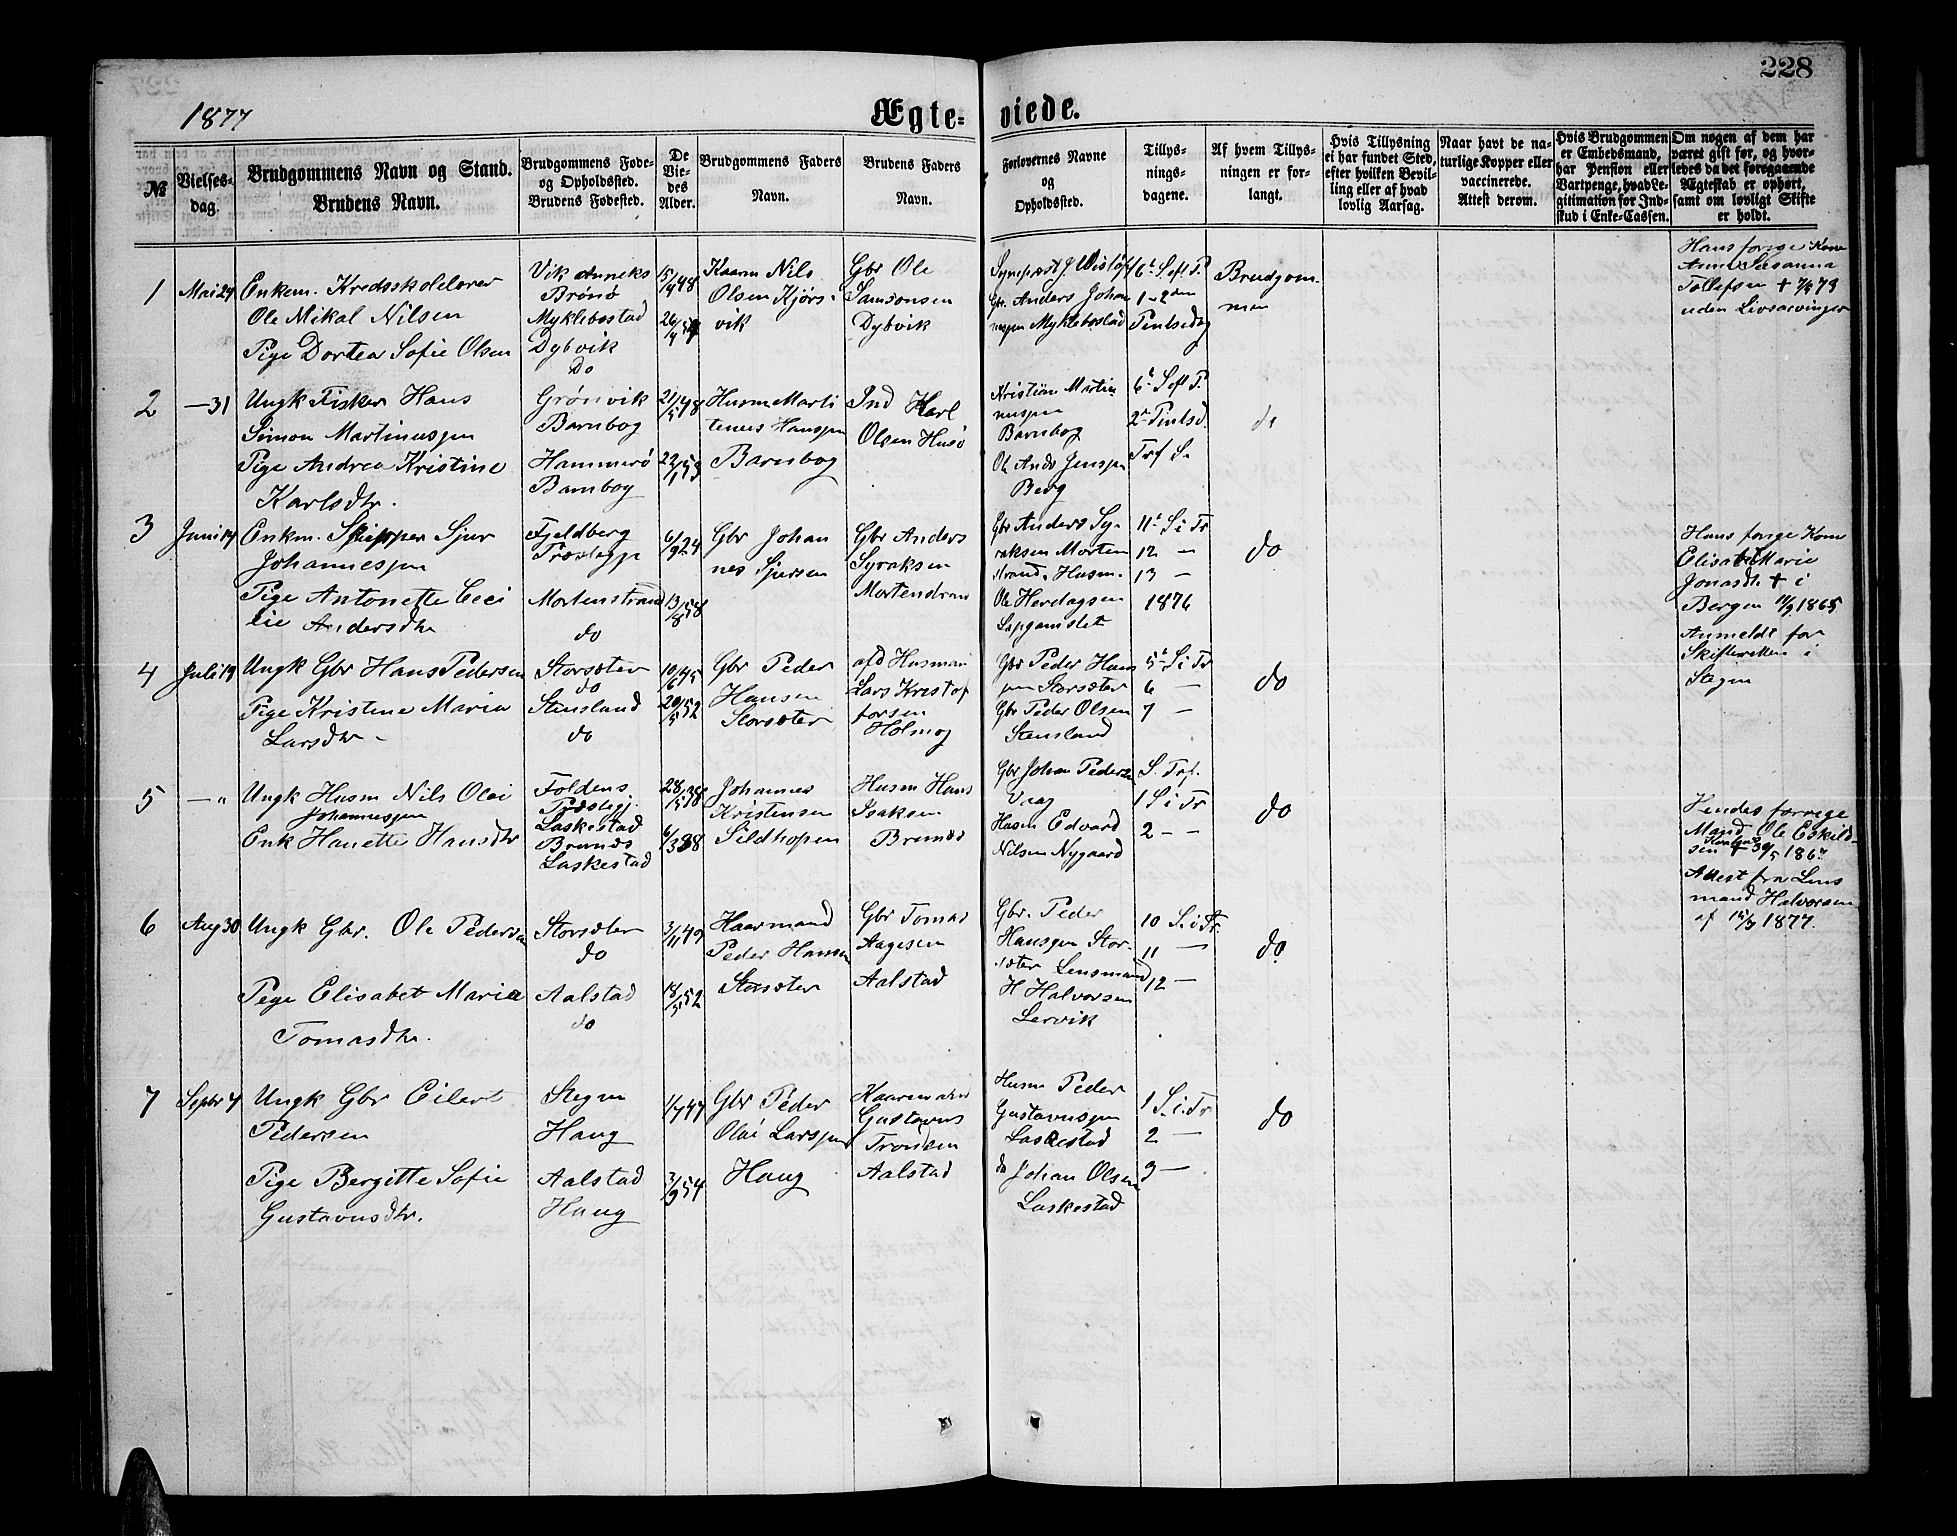 228
1877
Ægteviede.
№
Vielsesdag.
Brudgommens Navn og Stand.
Brudens Navn.
Brudgommens Fødeog Opholdssted.
Brudens Fødested.
De Viedes Alder.
Brudgommens Faders Navn.
Brudens Faders Navn.
Forlovernes Navne og Opholdssted.
Tillysningsdagene.
Af hvem Tillysningen er forlangt.
Hvis Tillysning ei har fundet Sted, efter hvilken Bevilling eller af hvad lovlig Aarsag.
Naar havt de naturlige Kopper eller vaccinerede. Attest derom.
Hvis Brudgommen er Embedsmand, har Pension eller Vartpenge, hvad Legitimation for Indskud i Enke-Cassen.
Om nogen af dem har været gift før, og hvorledes da det foregaaende Ægteskab er ophørt, samt om lovligt Skifte er holdt.
1
Mai 24
Enkem. Kredsskolelærer
Ole Mikal Nilsen
Pige Dortea Sofie Olsen
Vik Anneks
Brønø
Myklebostad
Dybvik
Do
15/4 48
26/4 54
Kaarm Nils
Olsen Kjørsvik
Gbr Ole
Samsonsen
Dybvik
Gbr. Anders Johannesen Myklebostad
6te S efl P.
1 - 2den
Pintsedag
Brudgommen
Hans forrige Kone
Anna Susanna
Tollefsen + 7/4 73
uden Livsarvinger
2
— 31
Ungk Fisker Hans
Simon Martinussen
Pige Andrea Kristine
Karlsdtr.
Grønvik
Barnbog
Hammerø
Barnbog
21/5 48
22/1 53
Husm Martinus Hanssen
Barnbog
Ind Karl
Olsen Husø
Kristian Martinussen
Barnbog
Ole Ands Jenssen
Berg
6te S efl P.
2n Pintsd.
Trf S.
do
3
Juni 14
Enkm. Skipper Sjur
Johannessen
Pige Antonette Cecilie Andersdtr
Fjeldberg
Præstegj
Mortenstrand
do
6/9 24
13/8 58
Gbr Johannes Sjursen
Gbr Anders
Syraksen
Mortenstran
Gbr Anders Syraksen Mortenstrand. Husm.
Ole Herdagsen
11te S i Tr
12 —
13 —
1876
do
Hans forrige Kone
Elisabet Marie
Jonasdtr + i
Bergen 11/9 1865
Anmeldt for
Skifteretten i
Stegen
4
Juli 19
Ungk Gbr Hans Pedersen
Pige Kristine Maria
Larsdtr
Storsæter
do
Stensland
do
10/6 45
20/5 52
Gbr Peder
Hansen
Storsæter
afd Husman
Lars Kristoffersen
Holmog
Gbr Peder Hanssen Storsæter
Gbr Peder Olsen
Stensland
5te S i Tr
6 —
7 —
do
5
— "
Ungk Husm Nils Olai
Johannessen
Enk Hanette Hansdtr
Foldens
Præstegj.
Laskestad
Brennes
Laskestad
28/5 38
6/3 38
Johannes
Kristensen
Sildhopen
Husm Hans
Isaksen
Gbr Johan Pedersen
Husm Edvard
Nilsen Nygaard
S. Trf.
1 S i Tr
2 - -
do
Hendes forrige
Mand Ole Eskildsen + 30/5 1867
Attest fra Lensmand Halvorsen
af 15/7 1877.
6
Aug 30
Ungk Gbr. Ole Pedersen
Pige Elisabet Maria
Tomasdtr.
Storsæter
do
Aalstad
do
3/11 49
18/5 52
Haarmand
Peder Hansen
Storsæter
Gbr Tomas
Aagesen
Aalstad
Gbr. Peder
Hanssen Storsæter Lensmand
H Halvorsen
Lervik
10 S. i Tr.
11 —
12 —
do
7
Sepbr 7
Ungk Gbr Eilert
Pedersen
Pige Bergitte Sofie
Gustavusdtr.
Stegen
Haug
Aalstad
Haug
1/7 47
3/9 54
Gbr Peder
Olai Larssen
Haug
Haarmand
Gustavus
Tronsen
Aalstad
Husm Peder
Gustavussen
Laskestad
do Johan Olsen
Laskestad
1 S. i. Tr
2 —
3 —
do